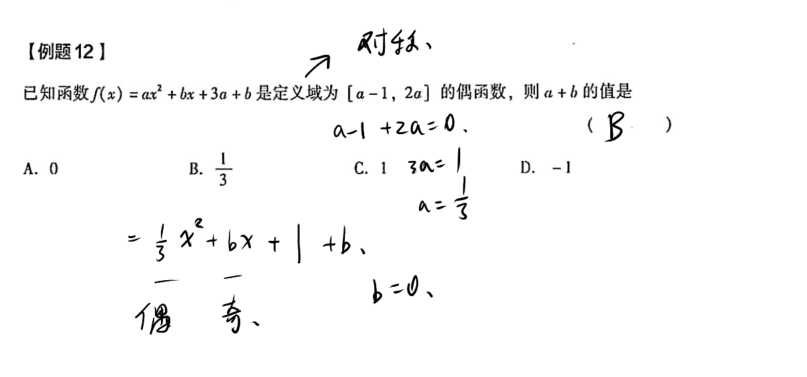 【例题12】
对称、
已知函数f(x)=ax²+bx+3a+b是定义域为[a-1，2a]的偶函数，则a+b的值是
a-1+2a=0.
（B）
A. 0 B. 1/3 C. 1 D. -1
3a=1
a=1/3
=1/3x²+bx+1+b、
b=0、
偶 奇、